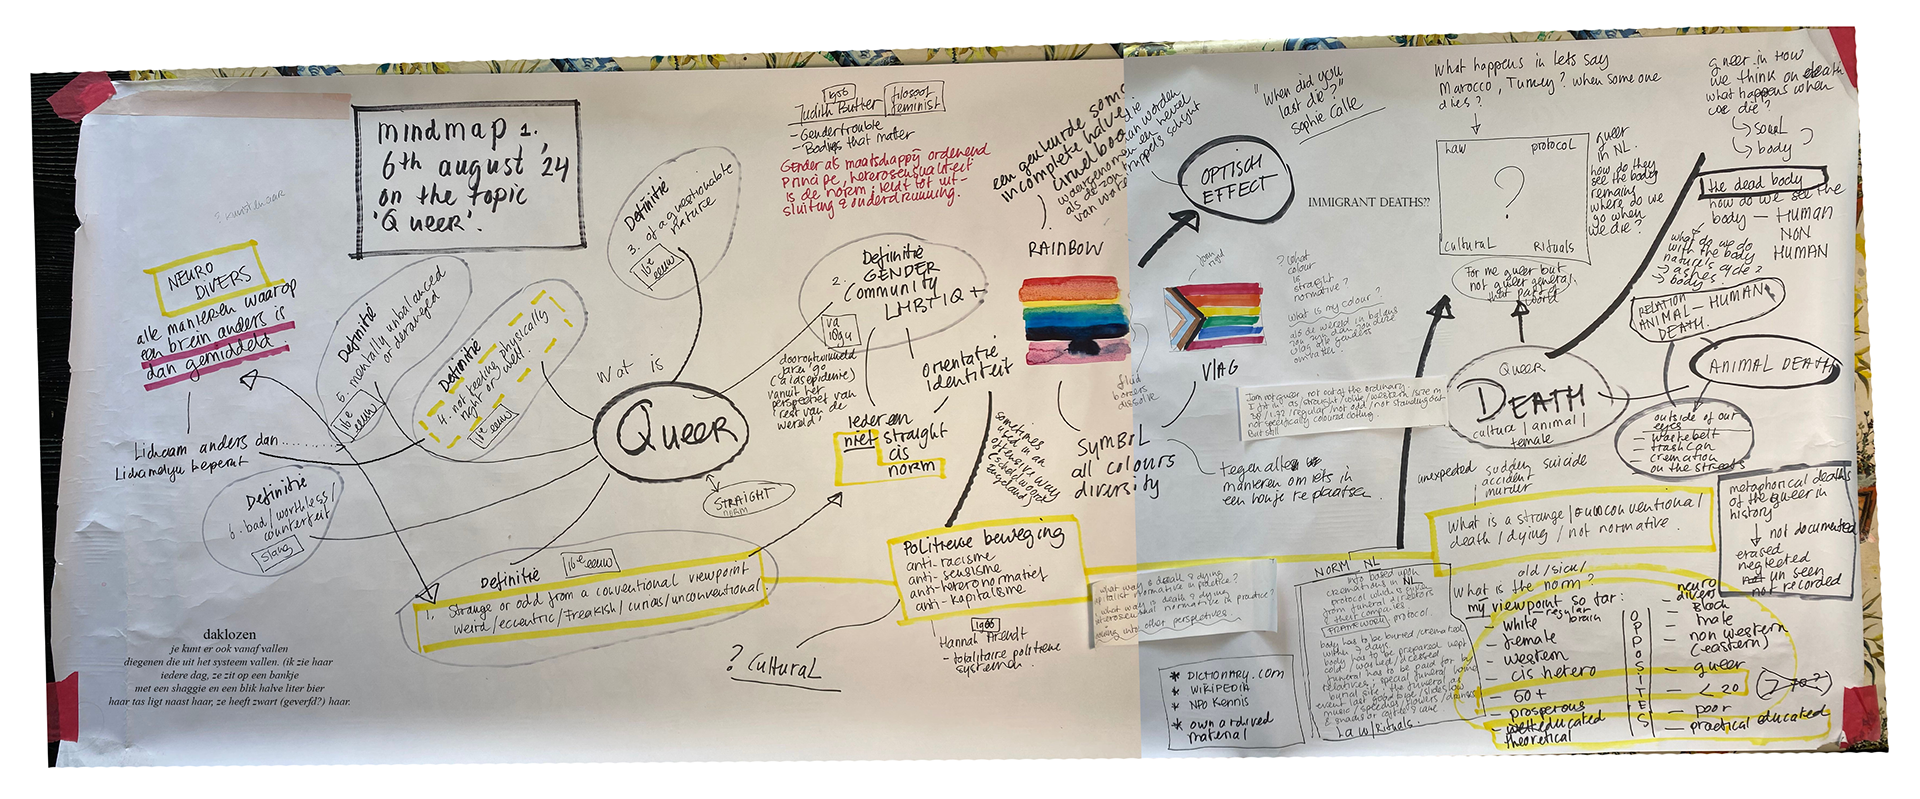 mindmap 1.
6th august '24
on the topic
'Queer'.
NEURO
DIVERS
alle manieren waarop
een brein anders is
dan gemiddeld.
Lichaam anders dan..........
Lichamelijk beperkt
Definitie
5. mentally unbalanced
or deranged
16e
eeuw
Definitie
4. not feeling physically
right or well.
1e eeuw
Definitie
3. of a questionable
nature
16e
eeuw
Definitie
6. bad/worthless/
counterfeit
slang
What is
QUEER
STRAIGHT
NORM
Definitie
16e eeuw
1. Strange or odd from a conventional viewpoint
weird/eccentric/freakish/curious/unconventional.
daklozen
je kunt er ook vanaf vallen
diegenen die uit het systeem vallen. (ik zie haar
iedere dag, ze zit op een bankje
met een shaggie en een blik halve liter bier
haar tas ligt naast haar, ze heeft zwart (geverfd?) haar.
1956
Judith Butler
filosoof
feminist
- Gendertrouble
- Bodies that mater
Gender als maatschappij ordenend
principe, heterosexualiteit
is de norm; leidt tot uit-
sluiting & onderdrukking.
Definitie
2. GENDER
Community
LHBTIQ+
va
1994
jaren '90
(aidsepidemie)
vanuit het
perspectief van
'rest van de
wereld'
iedereen
niet straight
cis
norm
orientatie
identiteit
sometimes
used in an
offensive way
(scheldwoord
Engeland)
Politieke beweging
anti-racisme
anti-sexisme
anti-heteronormatief
anti-kapitalisme
1906
Hannah Arendt
- totalitaire politieke
systemen.
? Cultural
een gekleurde
incomplete halve
cirkelboog
RAINBOW
SYMBOL
all colours
diversity
fluid
borders
dissolve
OPTISCH
EFFECT
VlAG
"When did you
last die?"
Sophie Calle
IMMIGRANT DEATHS??
? what
colour
is
straight
normative?
What is my colour?
als de wereld in balans
zou zijn dan zou deze
vlag alle genders
omvatten.
tegen alle
manieren om iets in
een hokje te plaatsen.
I am not queer, not out of the ordinary.
I fit in as/straight/white/western/size m
38/1.72/regular/not odd/not standing out
not specifically coloured clothing.
But still
What happens in lets say
Marocco, Turkey? when some one
dies?
Law
protocol
?
cultural
Rituals
queer
in NL.
how do they
see the body
remains
where do we
go when
we die?
For me queer but
not queer general.
that part of
world
queer in How
we think on death
what happens when
we die?
soul ?
body
the dead body
how do we see the
body — HUMAN
NON
HUMAN
what do we do
with the body
nature's cycle?
→ ashes
→ body
RELATION
ANIMAL-HUMAN
DEATH.
ANIMAL DEATH
QUEER
DEATH
culture/animal/
female
outside of our
eyes
- waste belt
- trash can
- cremation
on the streets
unexpected sudden suicide
accident
murder
What is a strange/unconventional/
death/dying/not normative.
metaphorical deaths
of the queer in
history
not documented
erased
neglected
un seen
not recorded
what way is death & dying
capitalist normative in practice?
what way is death & dying
heterosexual normative in practice?
looking into other perspectives.
* DICTIONARY.COM
* WIKIPEDIA
* NPO Kennis
* own archived
material
NORM NL
Info based upon
cremations in NL
protocol which is such
from funeral directors
& their companies.
FRAMEWORK protocol.
body has to be buried/cremated
within 7 days
body has to be prepared kept
cold/washed/dressed
funeral has to be paid for by
relatives, special funeral home
burial site, the funeral an
event last goodbye/slideshow
music/speeches/flowers/drinks
& snacks or coffee & cake
Law/Rituals.
old/sick/
What is the norm?
my viewpoint so far:
- regular
brain
- white
- female
- western
- cis hetero
- 50+
- prosperous
- educated
theoretical
OPPOSITES
- neuro
divers
- Black
- male
- non western
(eastern)
- queer
- <20
- poor
- practical educated